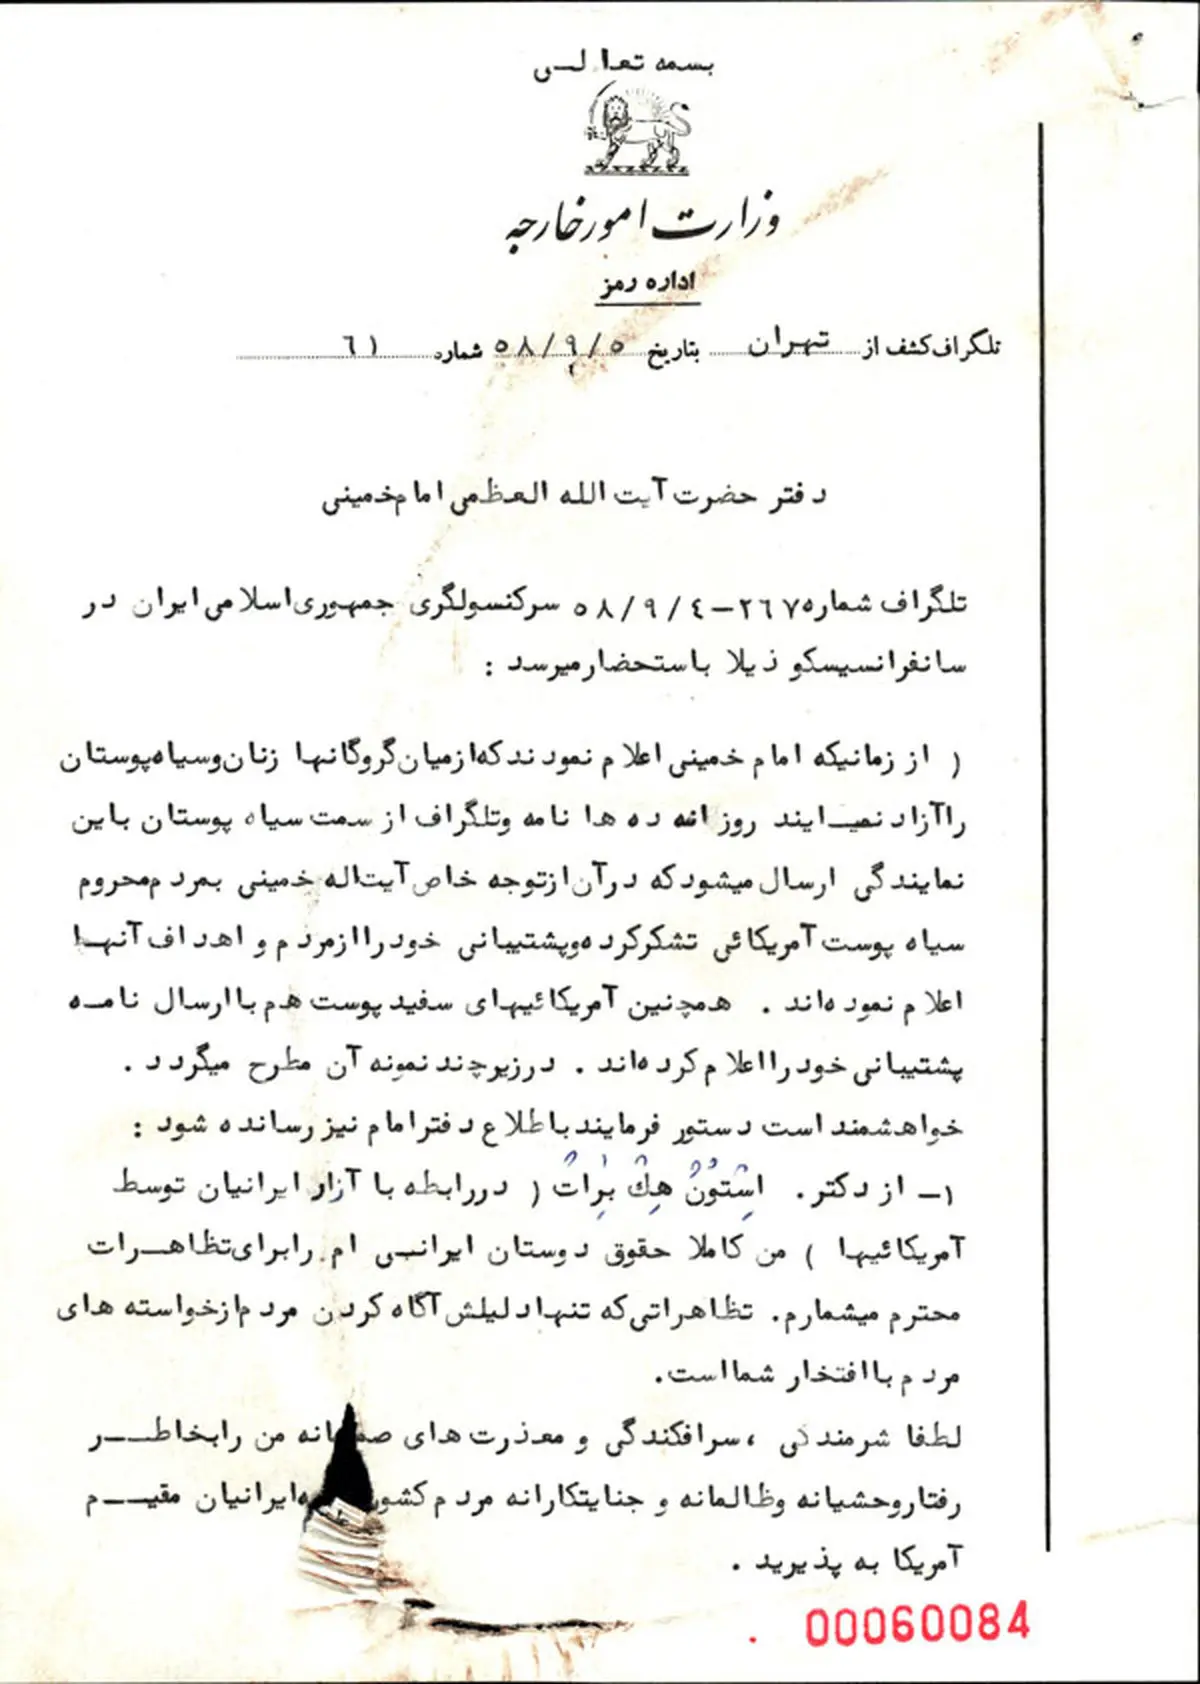 بسمه تعالی
وزارت امور خارجه
اداره رمز
تلگراف کشف از تهران بتاریخ ۵۸/۹/۵ شماره ۶۱
دفتر حضرت آیت الله العظمی امام خمینی
تلگراف شماره ۲۶۷-۵۸/۹/۴ سرکنسولگری جمهوری اسلامی ایران در
سانفرانسیسکو ذیلا باستحضار میرسد :
( از زمانیکه امام خمینی اعلام نمودند که از میان گروگانها زنان و سیاه پوستان
را آزاد نمایند روزانه ده ها نامه و تلگراف از سمت سیاه پوستان باین
نمایندگی ارسال میشود که در آن از توجه خاص آیت اله خمینی بمردم محروم
سیاه پوست آمریکائی تشکر کرده و پشتیبانی خود را از مردم و اهداف آنها
اعلام نموده اند . همچنین آمریکائیهای سفید پوست هم با ارسال نامه
پشتیبانی خود را اعلام کرده اند . در زیر چند نمونه آن مطرح میگردد .
خواهشمند است دستور فرمایند باطلاع دفتر امام نیز رسانده شود :
۱- از دکتر . اِسْتوُنْ هِکْ بِراتْ ( در رابطه با آزار ایرانیان توسط
آمریکائیها ) من کاملا حقوق دوستان ایرانی ام را برای تظاهرات
محترم میشمارم. تظاهراتی که تنها دلیلش آگاه کردن مردم از خواسته های
مردم با افتخار شما است.
لطفا شرمندگی ، سرافکندگی و معذرت های من را بخاطر
رفتار وحشیانه و ظالمانه و جنایتکارانه مردم کشور ایرانیان مقیم
آمریکا به پذیرید .
00060084